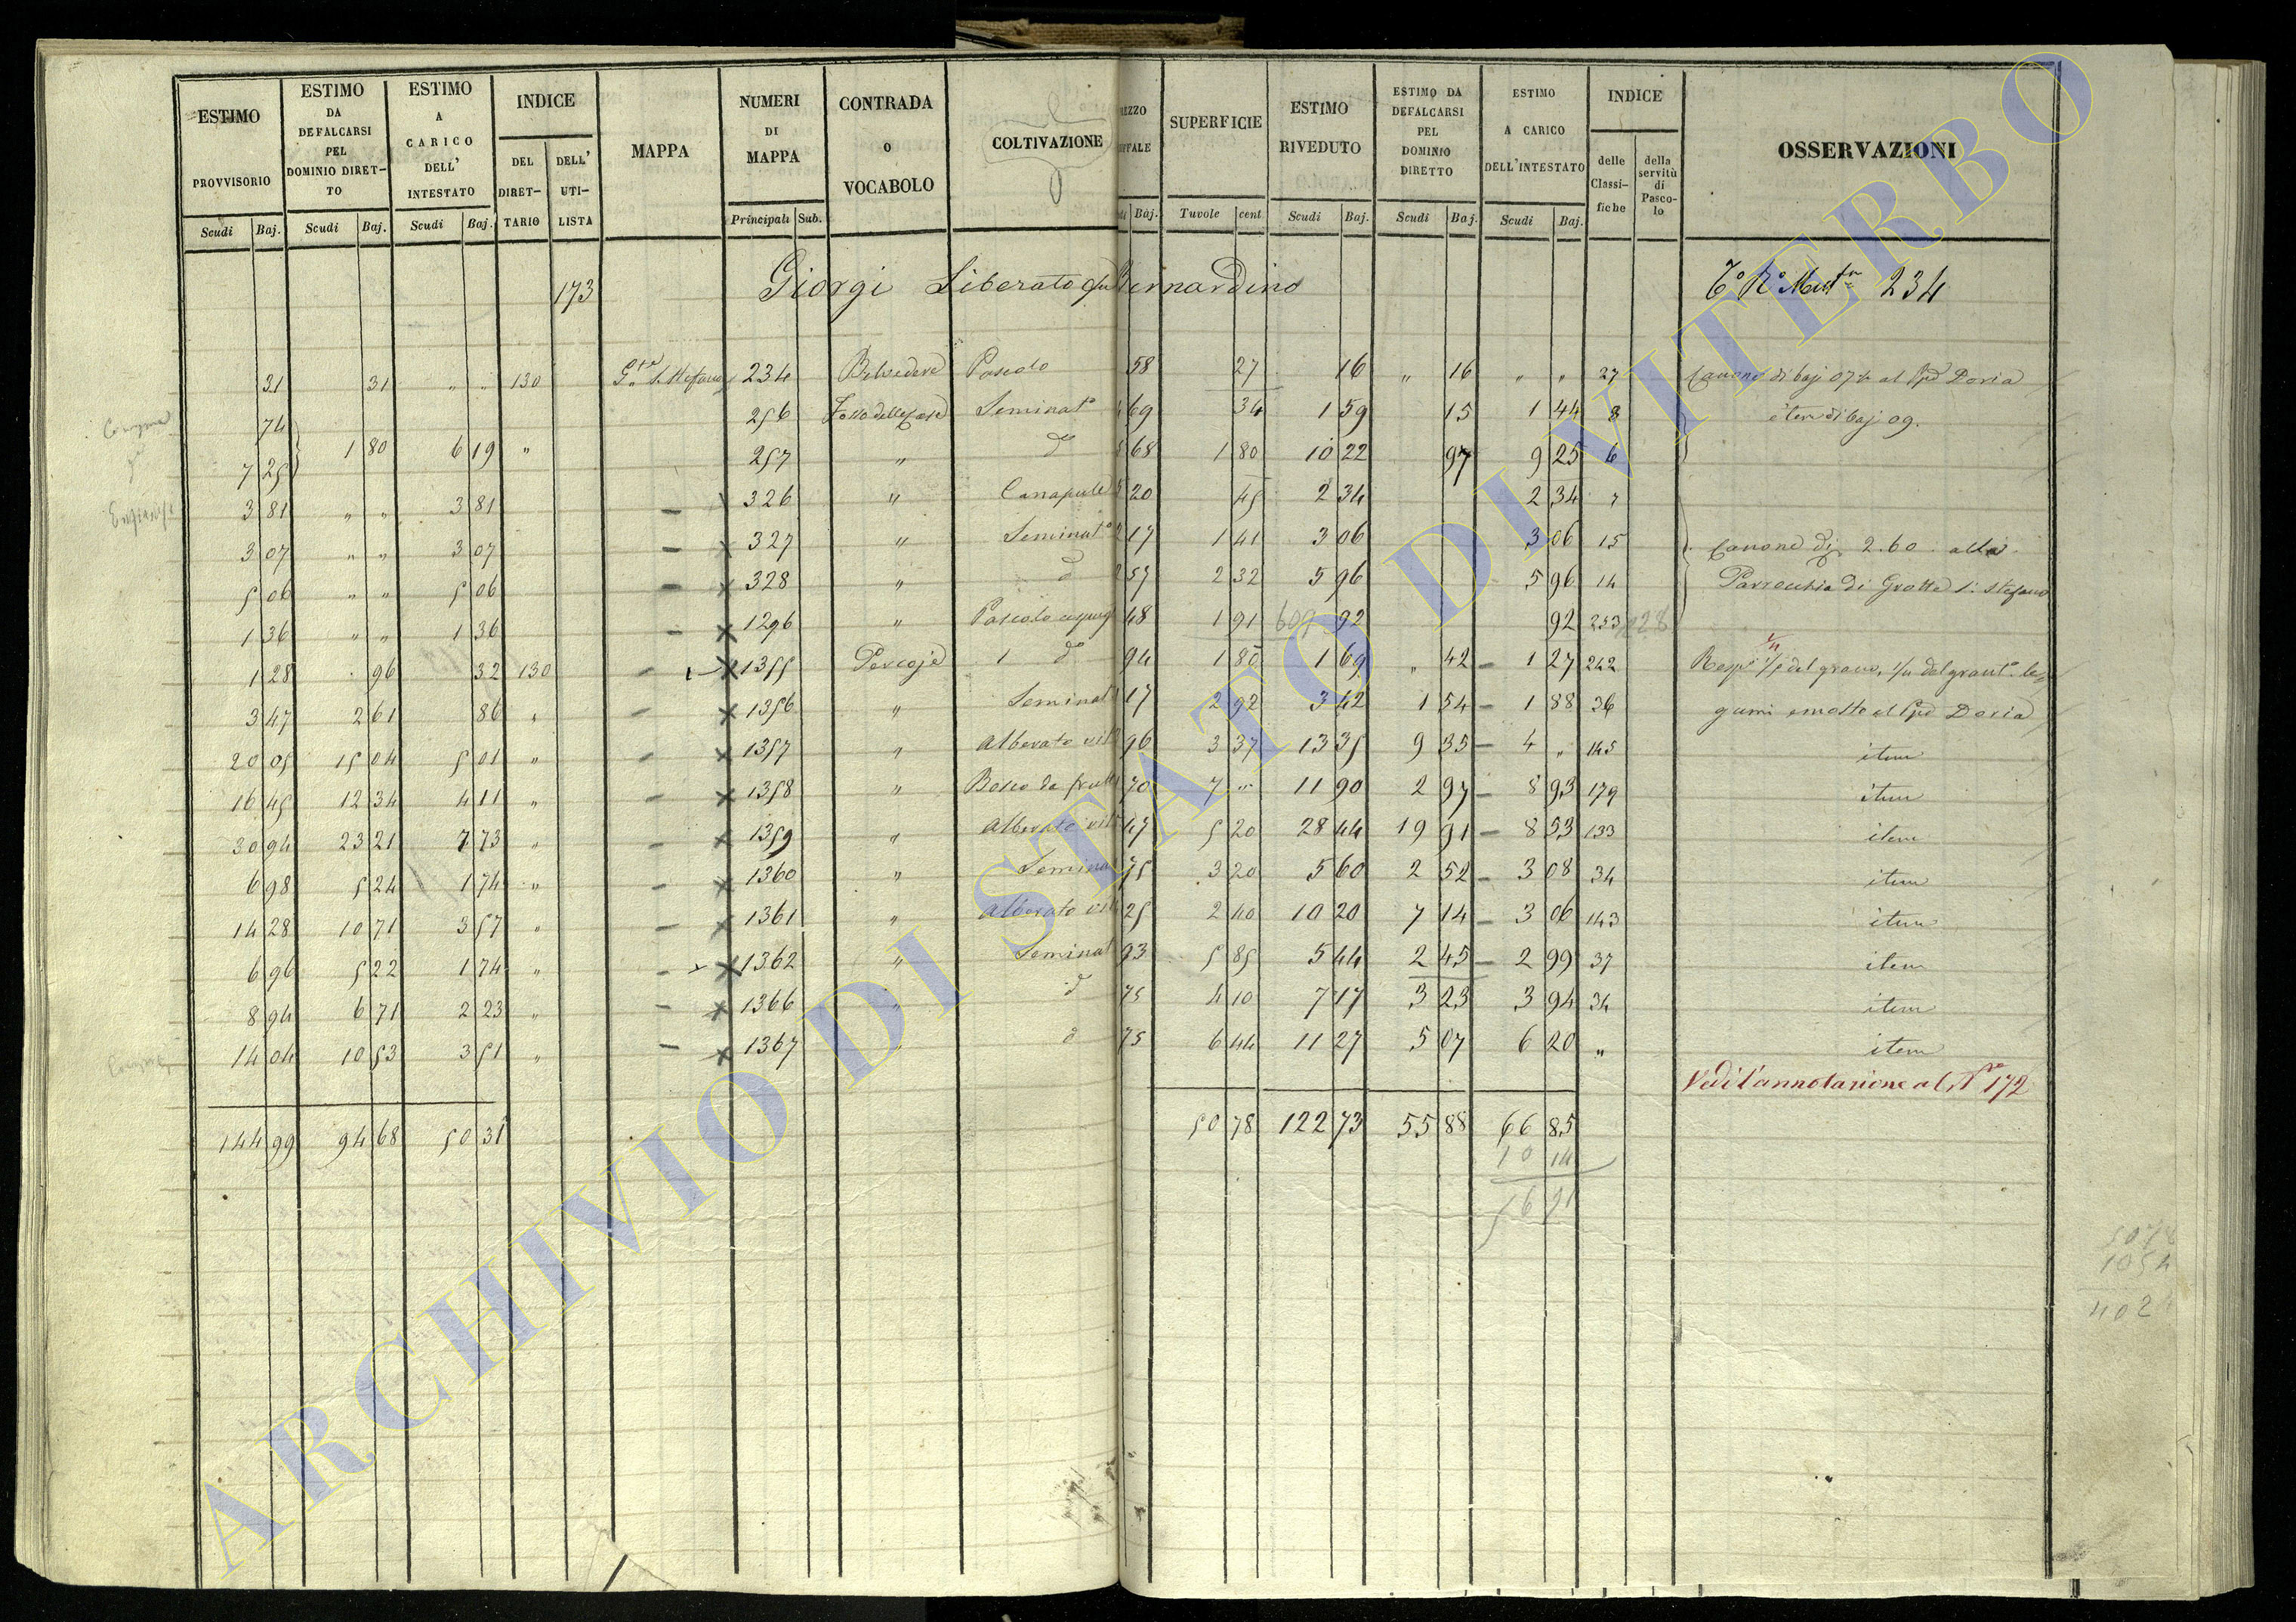 ESTIMO PROVVISORIO Scudi Baj. | ESTIMO DA DEFALCARSI PEL DOMINIO DIRETTO Scudi Baj. | ESTIMO A CARICO DELL' INTESTATO Scudi Baj. | INDICE DEL DIRETTARIO | DELL' UTILISTA | MAPPA | NUMERI DI MAPPA Principali Sub. | CONTRADA O VOCABOLO | COLTIVAZIONE | Baj. | SUPERFICIE Tavole cent | ESTIMO RIVEDUTO Scudi Baj. | ESTIMO DA DEFALCARSI PEL DOMINIO DIRETTO Scudi Baj. | ESTIMO A CARICO DELL'INTESTATO Scudi Baj. | INDICE delle Classifiche | della servitù di Pascolo | OSSERVAZIONI
173 Giorgi Liberato qu Bernardino 234
31 | 31 | " " | 130 | 234 | Belvedere | Pascolo | 58 | 27 | 16 | " 16 | " " | 27 | Canone di baj 07 al Doria
74 | 256 | Seminat° | 69 | 34 | 1 59 | 15 | 1 44 | 8 | item di baj 09.
7 25 | 1 80 | 6 19 | " | 257 | " | d° | 68 | 1 80 | 10 22 | 97 | 9 25 | 6
3 81 | " " | 3 81 | 326 | " | 20 | 45 | 2 34 | 2 34 | 7
3 07 | " " | 3 07 | 327 | " | Seminat° | 17 | 1 41 | 3 06 | 3 06 | 15 | Canone di 2.60 alla
5 06 | " " | 5 06 | 328 | " | d | 57 | 2 32 | 5 96 | 5 96 | 14 | Parrocchia di Grotte S. Stefano
1 36 | " " | 1 36 | 1296 | " | Pascolo | 48 | 1 91 | 92 | 92 | 253
1 28 | 96 | 32 | 130 | 1355 | d° | 94 | 1 80 | 1 69 | " 42 | 1 27 | 242 | del grano, 1/4 del
3 47 | 2 61 | 86 | " | 1356 | " | Seminat | 17 | 2 92 | 3 42 | 1 54 | 1 88 | 36 | gumi e mosto al Doria
20 05 | 15 04 | 5 01 | " | 1357 | " | Alberato vit | 96 | 3 37 | 13 35 | 9 35 | 4 " | 145 | item
16 45 | 12 34 | 4 11 | " | 1358 | " | Bosco da frutt | 70 | 7 " | 11 90 | 2 97 | 8 93 | 179 | item
30 94 | 23 21 | 7 73 | " | 1359 | " | Alberato vit | 47 | 5 20 | 28 44 | 19 91 | 8 53 | 133 | item
6 98 | 5 24 | 1 74 | " | 1360 | " | Semina | 75 | 3 20 | 5 60 | 2 52 | 3 08 | 34 | item
14 28 | 10 71 | 3 57 | " | 1361 | " | Alberato vit | 25 | 2 40 | 10 20 | 7 14 | 3 06 | 143 | item
6 96 | 5 22 | 1 74 | " | 1362 | " | Seminat | 93 | 5 85 | 5 44 | 2 45 | 2 99 | 37 | item
8 94 | 6 71 | 2 23 | " | 1366 | " | d | 75 | 4 10 | 7 17 | 3 23 | 3 94 | 34 | item
14 04 | 10 53 | 3 51 | " | 1367 | " | d | 75 | 6 44 | 11 27 | 5 07 | 6 20 | " | item
Vedi l'annotazione al N° 172
144 99 | 94 68 | 50 31 | 50 78 | 122 73 | 55 88 | 66 85
10 14
ARCHIVIO DI STATO DI VITERBO